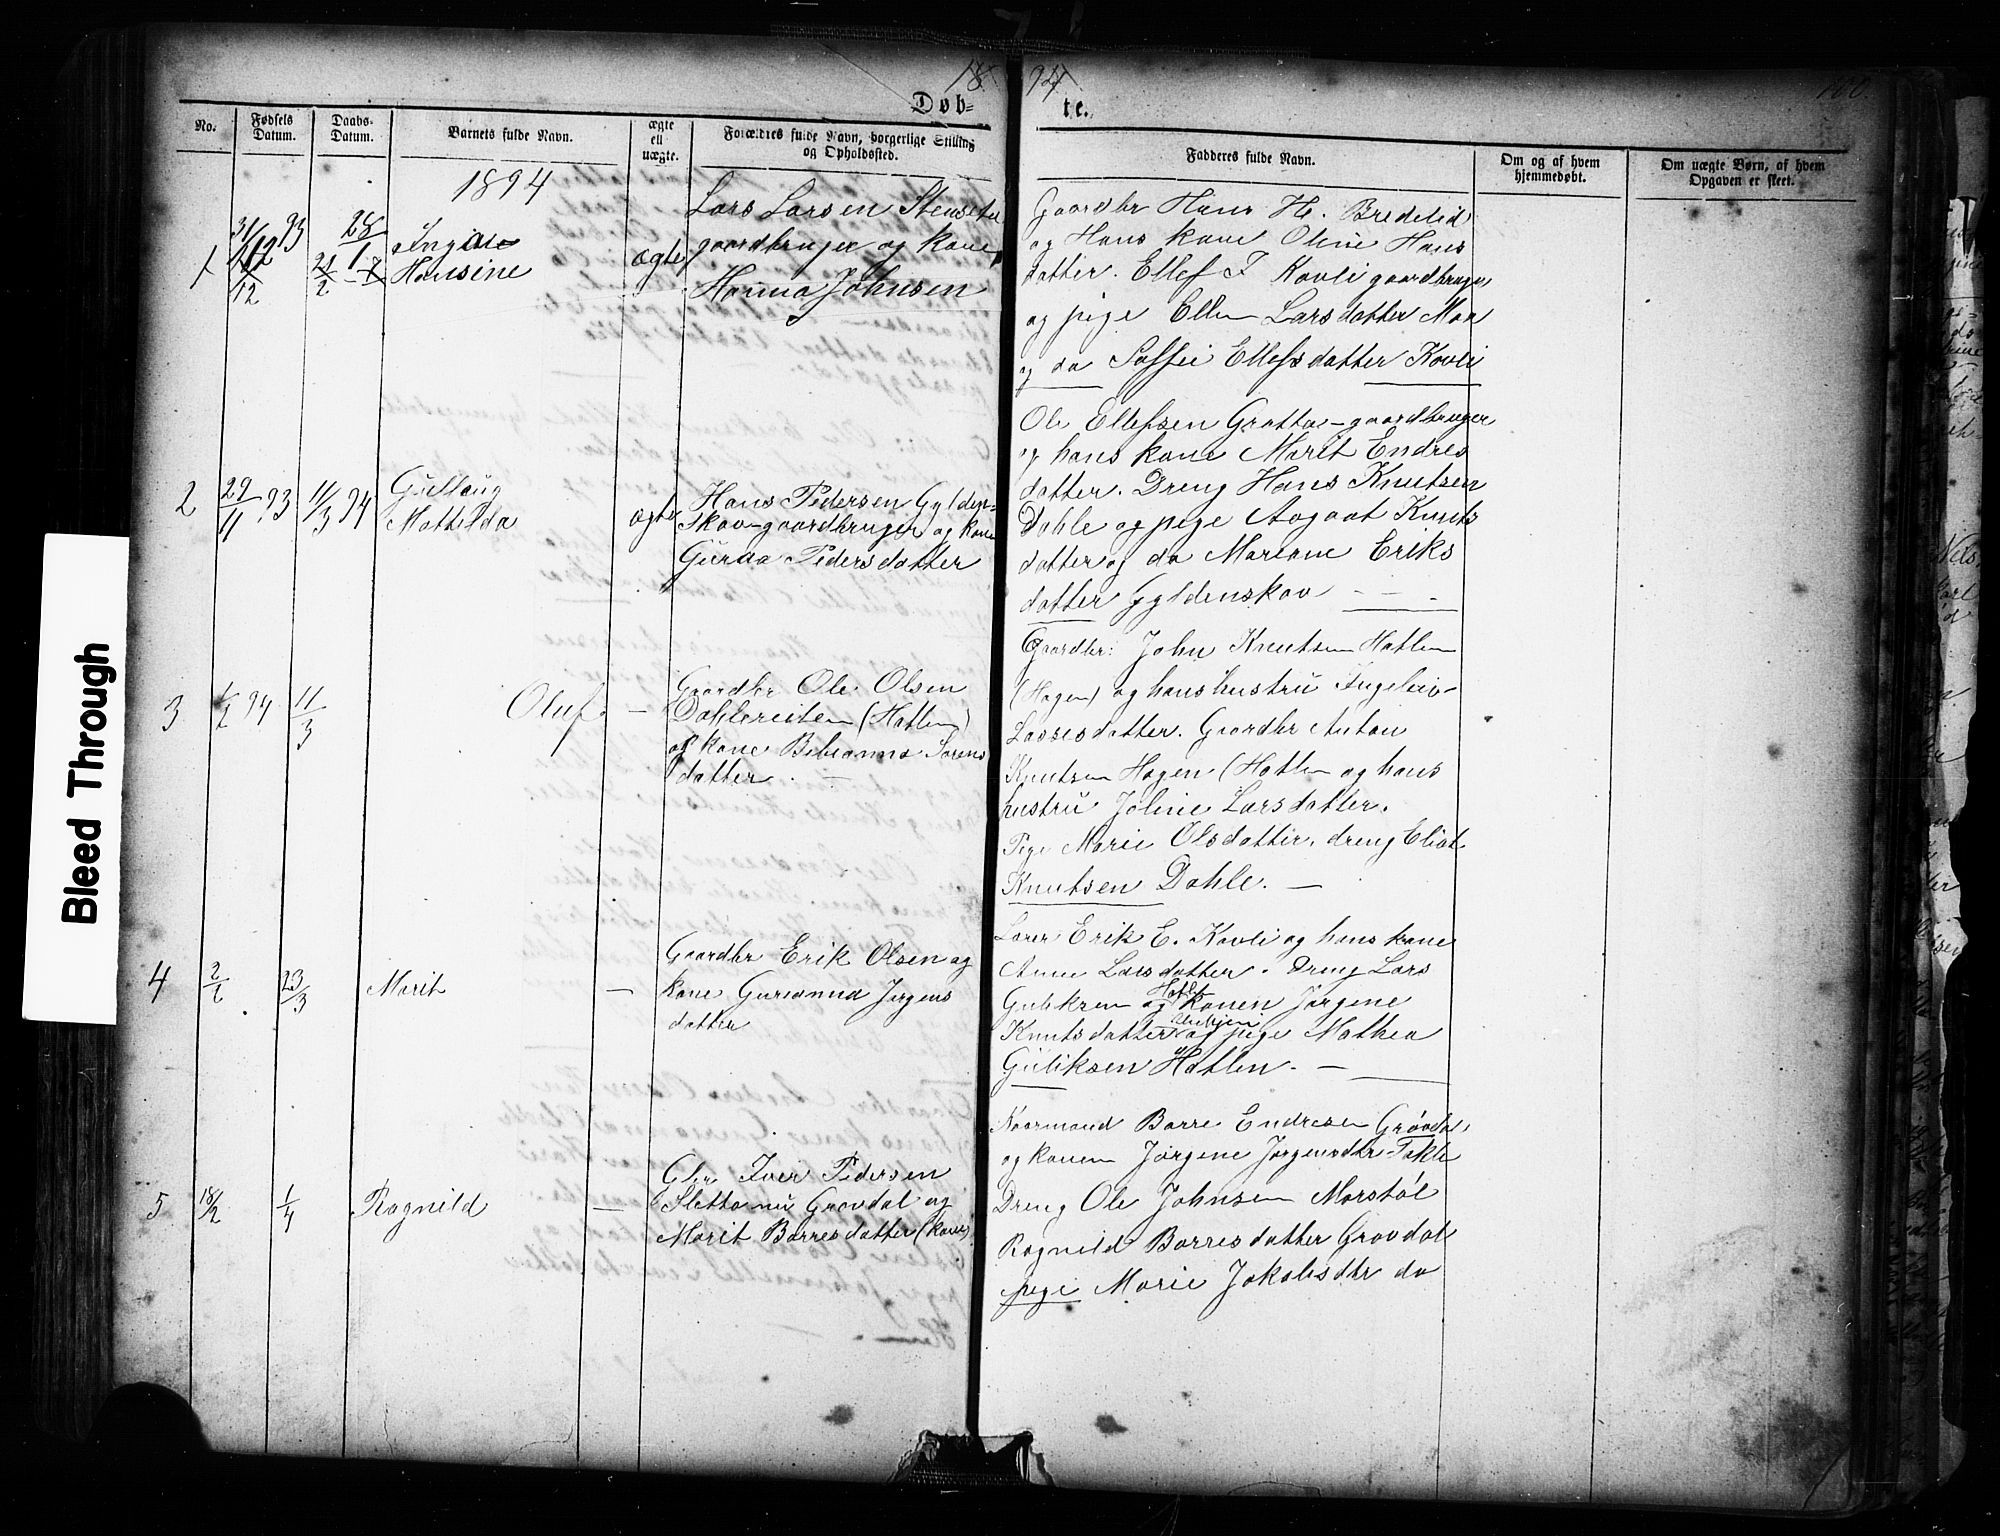 18 94
100
Döb- te.
No.
Fødsels Datum.
Daabs-Datum.
Barnets fulde Navn.
ægte ell uægte.
Forældres fulde Navn, borgerlige Stilling og Opholdssted.
Fadderes fulde Navn.
Om og af hvem hjemmedøbt.
Om uægte Børn, af hvem Opgaven er skeet.
Bleed Through
1894
1
31/12 93
28/1
Hansine
ægte
Lars Larsen
gaardbruger og kone
Hanna Johnsen
Gaardbr Hans H. Bredelid
og Hans kone Oline Hans
datter. Ellef T Kovli gaardbruger
og pige Ellen Larsdatter Moa
og do Soffie Ellefsdatter Kovli
2
29/11 93
11/3 94
Gullaug
Mathilda
ægte
Hans Pedersen Gylden-
skov-gaardbruger og kone
Gurua Pedersdatter
Ole Ellefsen Grotta-gaardbruger
og hans kone Marit Endres
datter. Dreng Hans Knutsen
Dahle og pige Aagaat Knuts
datter og do Mariane Eriks
datter Gyldenskov
3
94
11/3
Oluf
—
Gaardbr Ole Olsen
Dahlereiten (Hatlen)
og kone Bebianna Sørens
datter.
Gaardbr: John Knutsen Hatlen
(Hagen) og hans hustru Ingeleiv
Lassesdatter. Gaardbr Anton
Knutsen Hagen (Hatlen og hans
hustru Joline Larsdatter.
Pige Marie Olsdatter. dreng Eliot
Knutsen Dahle. —
4
23/3
Marit
—
Gaardbr Erik Olsen og
kone Gurianna Jørgens
datter
Lærer Erik E. Kovli og hans kone
Anne Larsdatter. Dreng Lars
Guliksen og konen Jørgene
Knutsdatter og pige Mathea
Guliksen Hatlen. —
5
18/2
1/4
Ragnild
—
Gbr Iver Pedersen
Sletta nu Grovdal og
Marit Barresdatter (kone)
Kaarmand Barre Endresen Grøvdal
og konen Jørgene Jørgensdtr Takle
Dreng Ole Johnsen Marstøl
Ragnild Barresdatter Grøvdal
pige Marie Jakobsdtr do